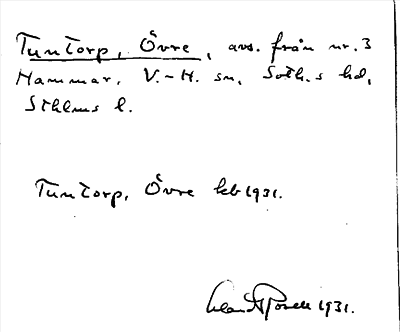 Tuntorp, Övre, avs. från nr. 3
Hammar, V.-H. sn, Soth.s hd,
Sthlms l.
Tuntorp, Övre kb 1931.
1931.